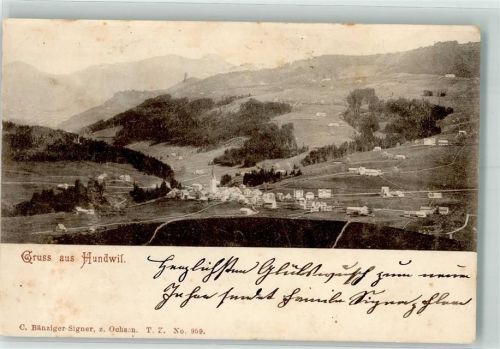 Gruss aus Hundwil.
Herzlichsten Glückswunsch zum neuen
Jahr sendet Familie Signer,
C. Bänziger-Signer, z. Ochsen. T. Z. No. 959.